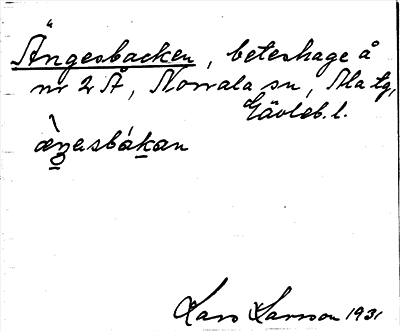 Ängesbacken, beteshage å
nr 2 Å, Norrala sn, Ala tg,
Gävleb. l.
æŋesbákan
Lars Larsson 1931